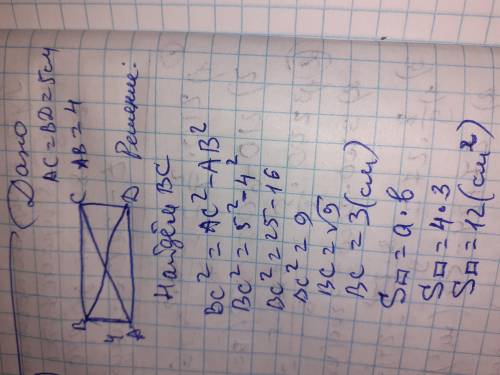 Дано
AC=BD=5см
AB=4
B C
4
A D
Решение:
Найдём BC
BC²=AC²-AB²
BC²=5²-4²
BC²=25-16
BC²=9
BC=√9
BC=3(см)
S▭=a·b
S▭=4·3
S▭=12(см²)